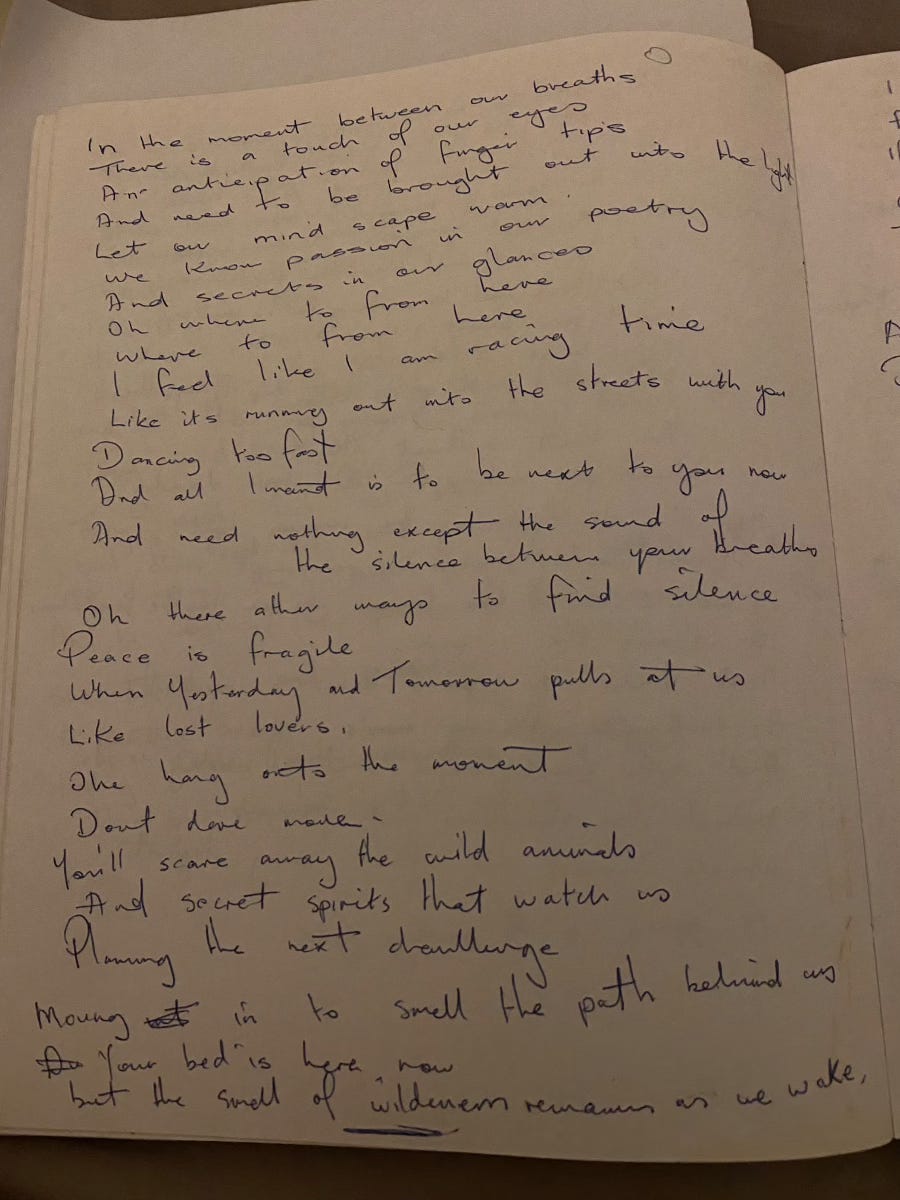 In the moment between our breaths
There is a touch of our eyes
An anticipation of finger tips
And need to be brought out into the light
Let our mind scape warm.
We know passion in our poetry
And secrets in our glances
Oh where to from here
Where to from here
I feel like I am racing time
Like its running out into the streets with you
Dancing too fast
And all I want is to be next to you now
And need nothing except the sound of
the silence between your breaths
Oh there other ways to find silence
Peace is fragile
When Yesterday and Tomorrow pulls at us
Like lost lovers.
hang the moment
Dont dare move.
You'll scare away the wild animals
And secret spirits that watch us
Planning the next challenge
Moving in to smell the path behind us
Your bed is here now
but the smell of wilderness remains as we wake,